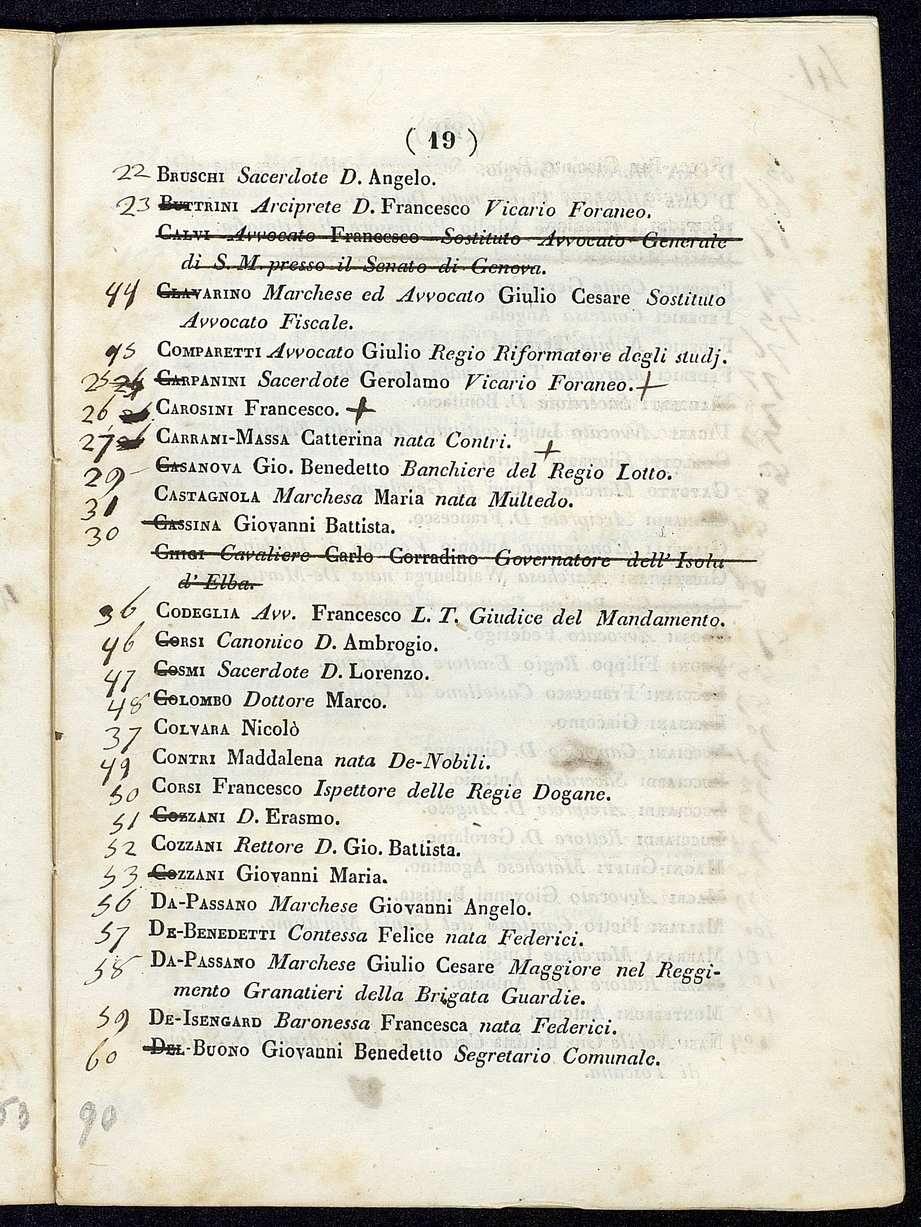 ( 19 )
22 BRUSCHI Sacerdote D. Angelo.
23 BUTTRINI Arciprete D. Francesco Vicario Foraneo.
CALVI Avvocato Francesco Sostituto Avvocato Generale
di S. M. presso il Senato di Genova.
44 CLAVARINO Marchese ed Avvocato Giulio Cesare Sostituto
Avvocato Fiscale.
45 COMPARETTI Avvocato Giulio Regio Riformatore degli studj.
25 CARPANINI Sacerdote Gerolamo Vicario Foraneo. +
26 CAROSINI Francesco. +
27 CARRANI-MASSA Catterina nata Contri. +
29 CASANOVA Gio. Benedetto Banchiere del Regio Lotto.
31 CASTAGNOLA Marchesa Maria nata Multedo.
30 CASSINA Giovanni Battista.
CHIGI Cavaliere Carlo Corradino Governatore dell' Isola
d' Elba.
36 CODEGLIA Avv. Francesco L. T. Giudice del Mandamento.
46 CORSI Canonico D. Ambrogio.
47 COSMI Sacerdote D. Lorenzo.
48 COLOMBO Dottore Marco.
37 COLVARA Nicolò
49 CONTRI Maddalena nata De-Nobili.
50 CORSI Francesco Ispettore delle Regie Dogane.
51 COZZANI D. Erasmo.
52 COZZANI Rettore D. Gio. Battista.
53 COZZANI Giovanni Maria.
56 DA-PASSANO Marchese Giovanni Angelo.
57 DE-BENEDETTI Contessa Felice nata Federici.
58 DA-PASSANO Marchese Giulio Cesare Maggiore nel Reggi-
mento Granatieri della Brigata Guardie.
59 DE-ISENGARD Baronessa Francesca nata Federici.
60 DEL-BUONO Giovanni Benedetto Segretario Comunale.
90